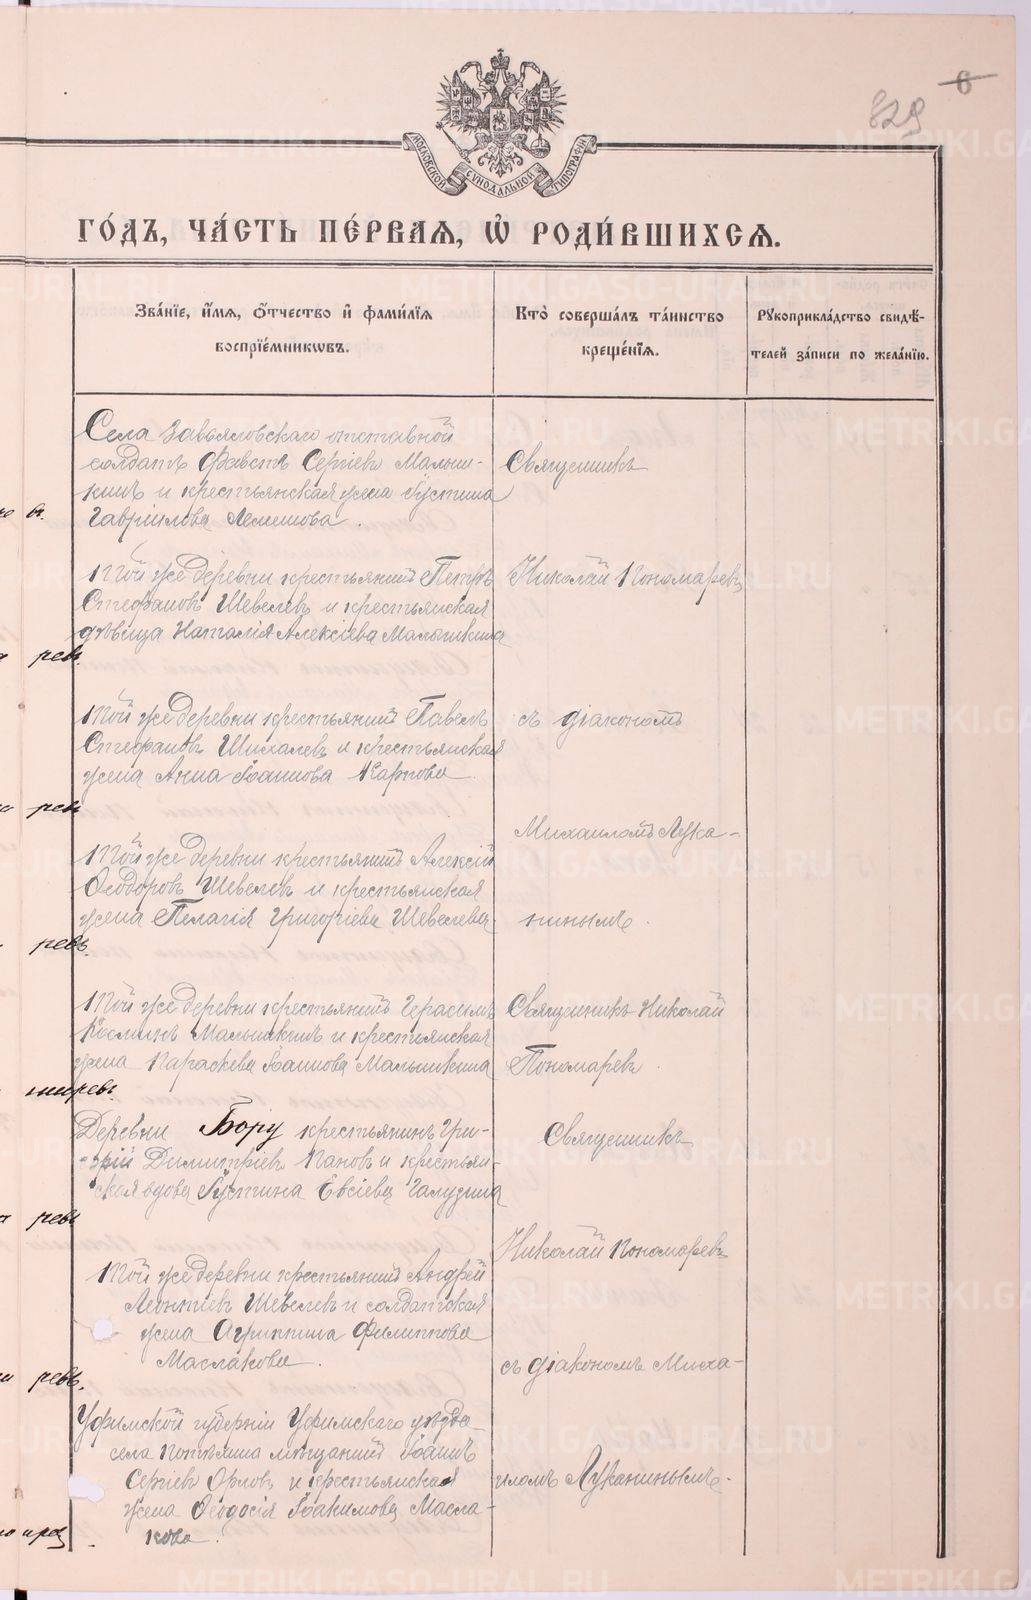 829
6
МОСКОВСКОЙ СУНОДАЛЬНОЙ ТИПОГРАФІИ
ГО́ДЪ, ЧА́СТЬ ПЕ́РВАѦ, Ѡ҆ РОДИ́ВШИХСѦ.
Зва́нїе, и҆́мѧ, ѻ҆́тчество и҆ фами́лїѧ
воспрїе́мникѡвъ.
Кто̀ соверша́лъ та́инство
креще́нїѧ.
Рꙋкоприкла́дство свидѣ́-
телей за́писи по жела́нїю.
Села Завьяловскаго отставной
солдатъ Фавстъ Сергіевъ Малыш-
кинъ и крестьянская жена Іустина
Гавріилова Лемешова.
Священникъ
Той же деревни крестьянинъ Петръ
Стефановъ Шевелевъ и крестьянская
дѣвица Наталія Алексіева Малышкина
Николай Пономаревъ
ревъ.
Той же деревни крестьянинъ Павелъ
Стефановъ Шихалевъ и крестьянская
жена Анна Іоаннова Карпова
съ діакономъ
ревъ
Михаиломъ Лука-
Той же деревни крестьянинъ Алексій
Ѳеодоровъ Шевелевъ и крестьянская
жена Пелагія Григоріева Шевелева
нинымъ.
ревъ.
Той же деревни крестьянинъ Герасимъ
Косминъ Малышкинъ и крестьянская
жена Параскева Іоаннова Малышкина
Священникъ Николай
Пономаревъ.
Деревни Бору крестьянинъ Гри-
горій Димитріевъ Пановъ и крестьян-
ская вдова Іустина Евсіева Галузина
Священникъ
ревъ
Николай Пономаревъ
Той же деревни крестьянинъ Андрей
Леонтіевъ Шевелевъ и солдатская
жена Агриппина Филиппова
Маслакова.
съ діакономъ Миха-
ревъ.
Уфимской губерніи Уфимскаго уѣзда
села мѣщанинъ Іоаннъ
Сергіевъ Орловъ и крестьянская
жена Ѳеодосія Іоакимова Масла-
кова.
иломъ Луканинымъ.